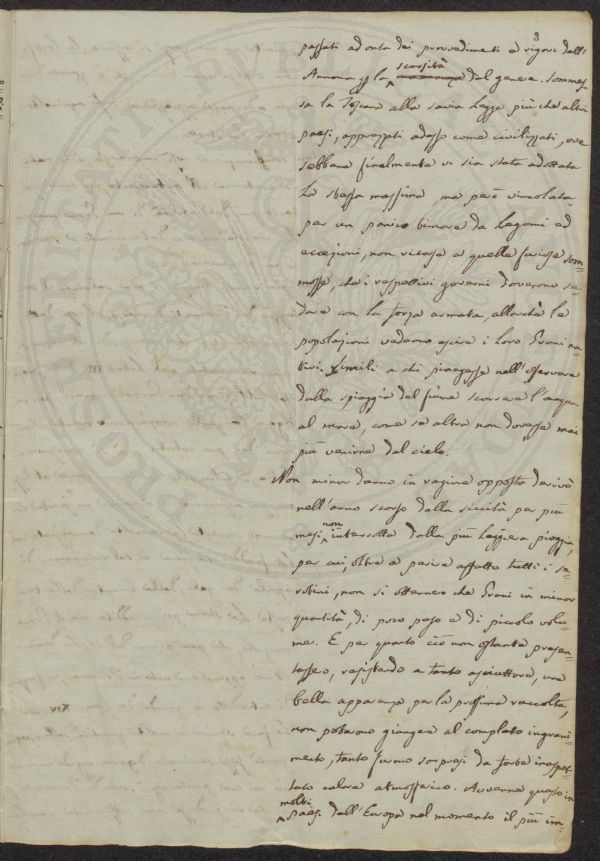 3
passati ad onta dei provvedimenti e rigori dell'
Annona per la scarsità del genere. Sommes
sa la Toscana alla savia Legge più che altri
paesi, apprezzati adesso come civilizzati, ove
sebbene finalmente vi sia stata adottata
la stessa massima, ma però vincolata
per un panico timore da Legami ed
eccezioni, non vicorse a quelle furiose som=
mosse, che i respettivi governi doverono se=
dare con la forza armata, allorchè le
popolazioni vedeano escire i loro Grani na=
tivi. Simili a chi piangesse nell'osservare
dalla spiaggia del fiume scorrere l'acqua
al mare, come se altra non dovesse mai
più venirne dal cielo.
Non minor danno in ragione opposta derivò
nell'anno scorso dalla siccità per più
mesi non interrotta dalla più leggiera pioggia,
per cui, oltre a perire affatto tutti i se=
rotini, non si ottennero che Grani in minor
quantità, di poco peso e di piccolo volu=
me. E per quanto ciò non ostante presen=
tassero, resistendo a tanto asciuttore, una
bella apparenza per la prossima raccolta,
non poterono giungere al completo ingrani=
mento, tanto furono sorpresi da forte inaspet=
tato calore atmosferico. Avvenne questo in
molti paesi dell'Europa nel momento il più im=